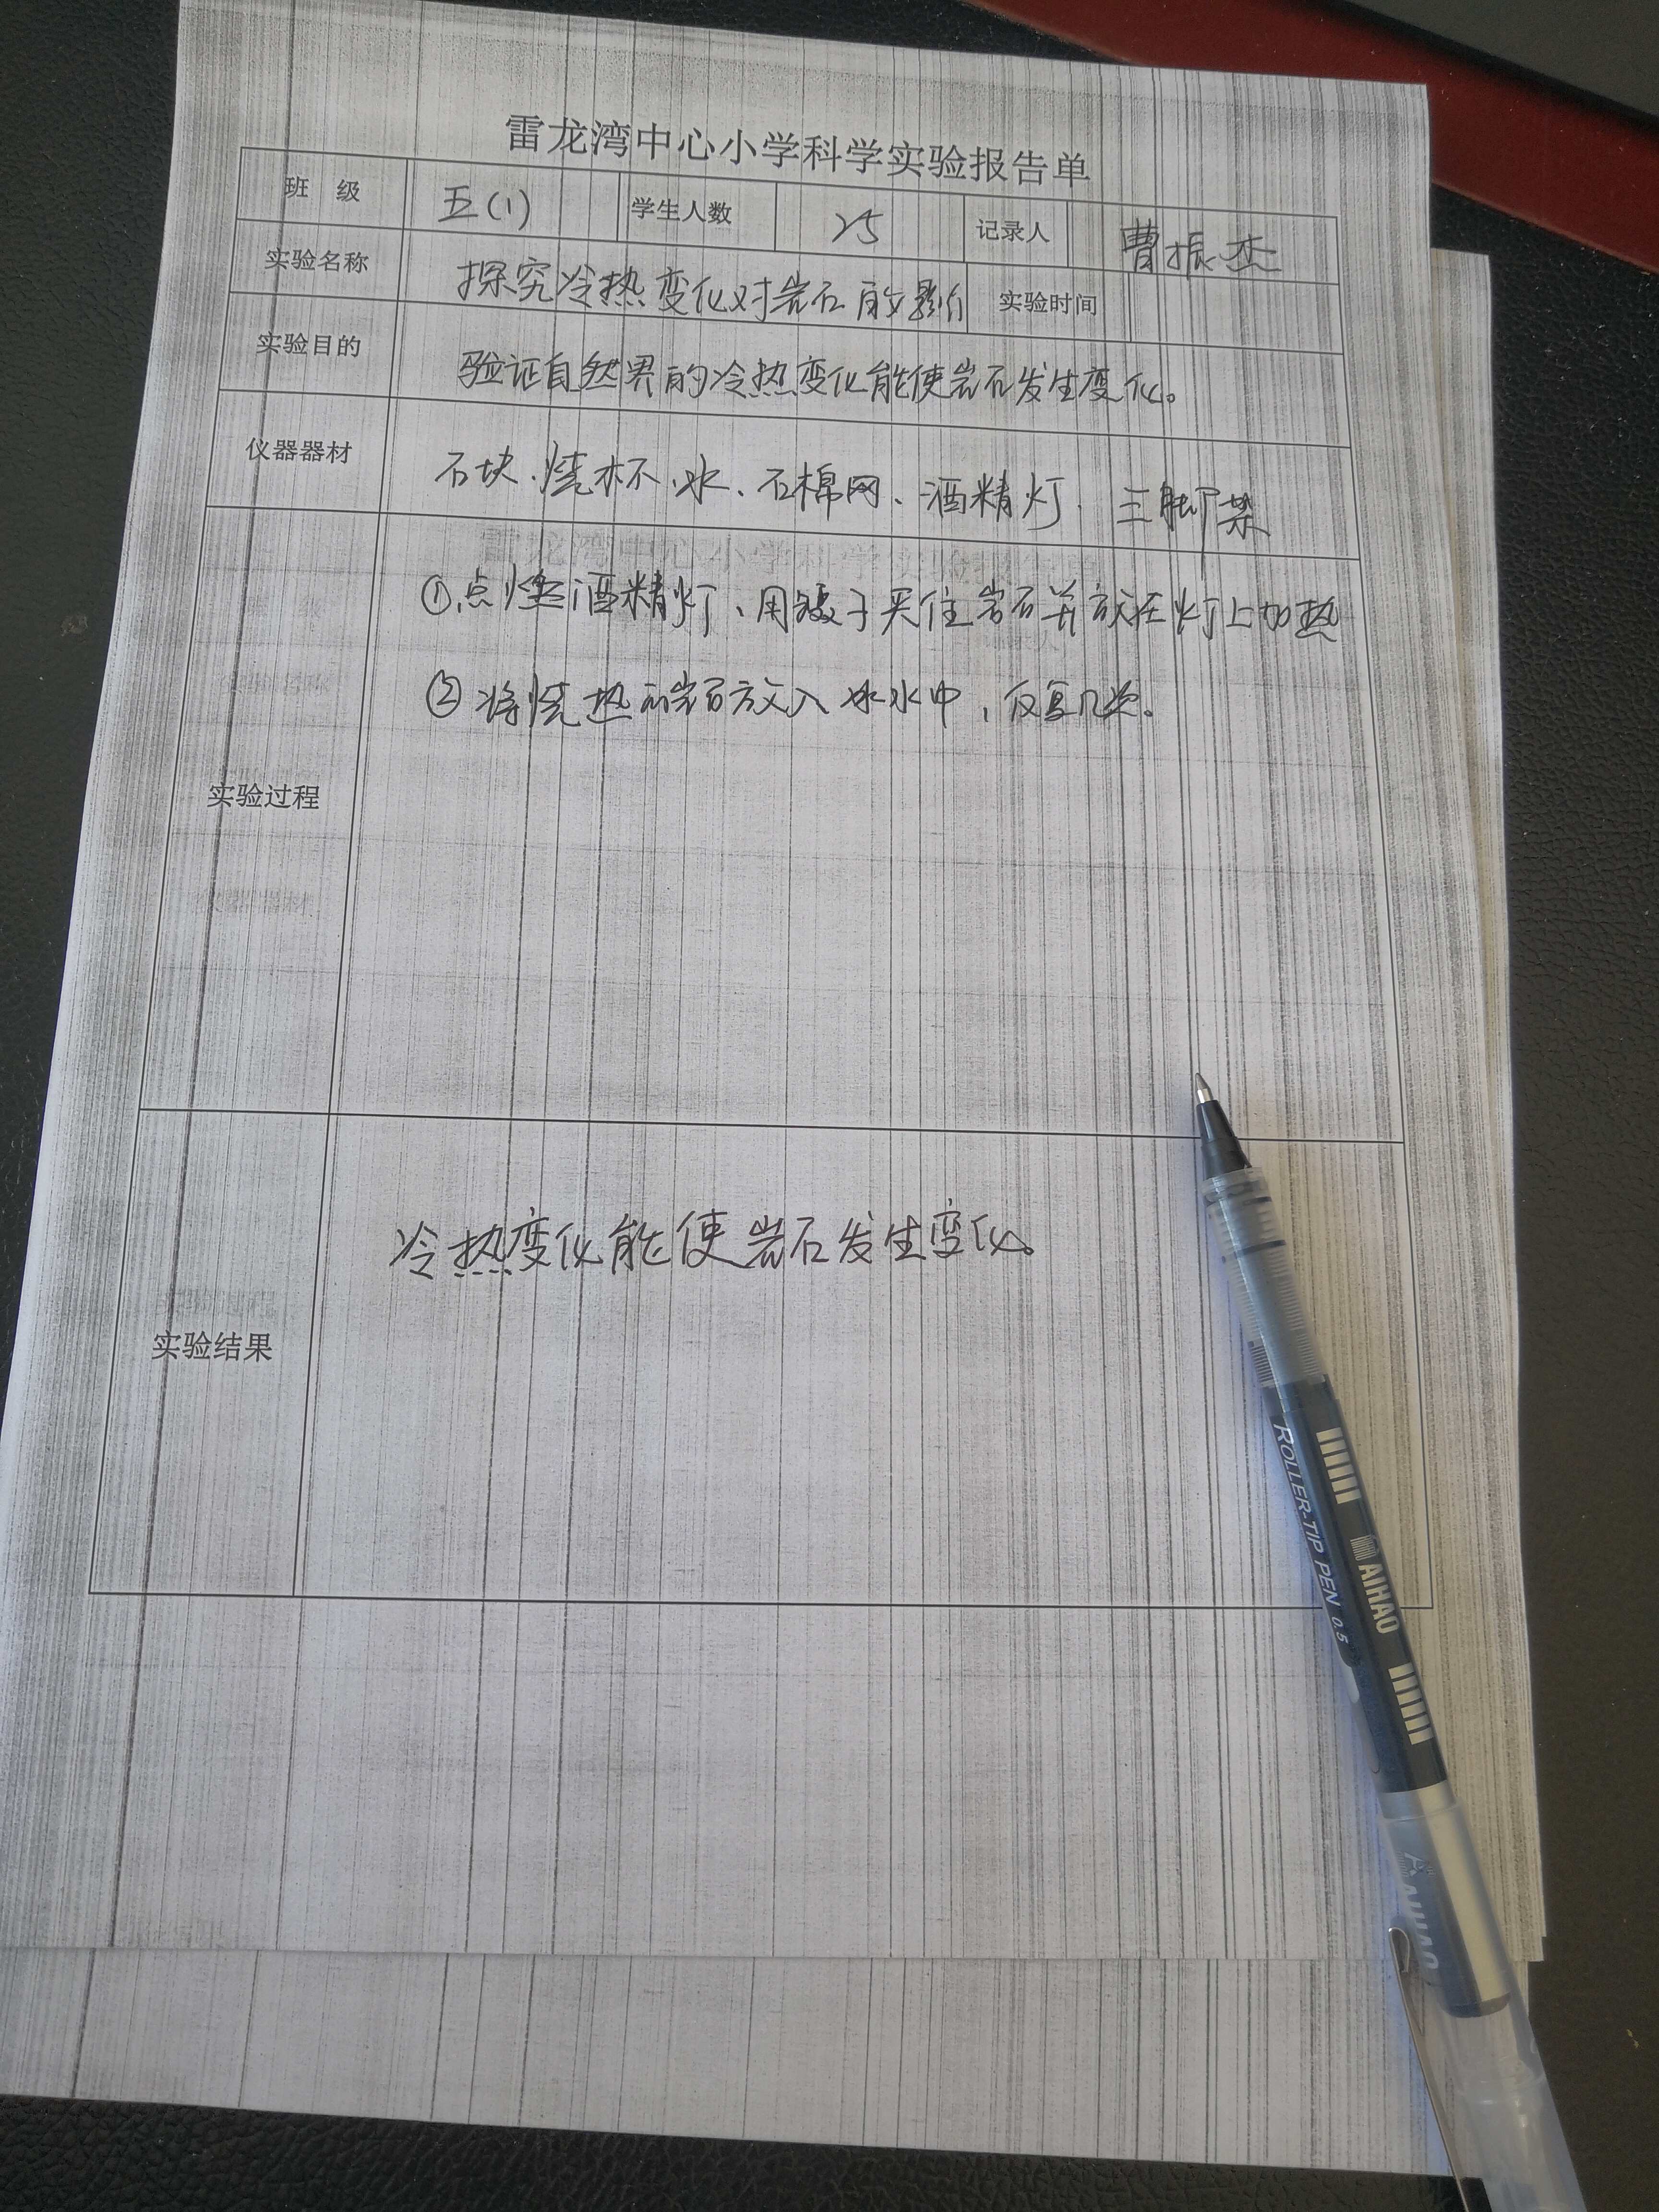 雷龙湾中心小学科学实验报告单
班 级 五(1) 学生人数 25 记录人 曹振杰
实验名称 探究冷热变化对岩石的影响 实验时间
实验目的 验证自然界的冷热变化能使岩石发生变化。
仪器器材 石块、烧杯、水、石棉网、酒精灯、三脚架
实验过程
①点燃酒精灯、用镊子夹住岩石并放在灯上加热
②将烧热的岩石放入冰水中,反复几次。
实验结果
冷热变化能使岩石发生变化。
ROLLER-TIP PEN 0.5
AIHAO
AIHAO